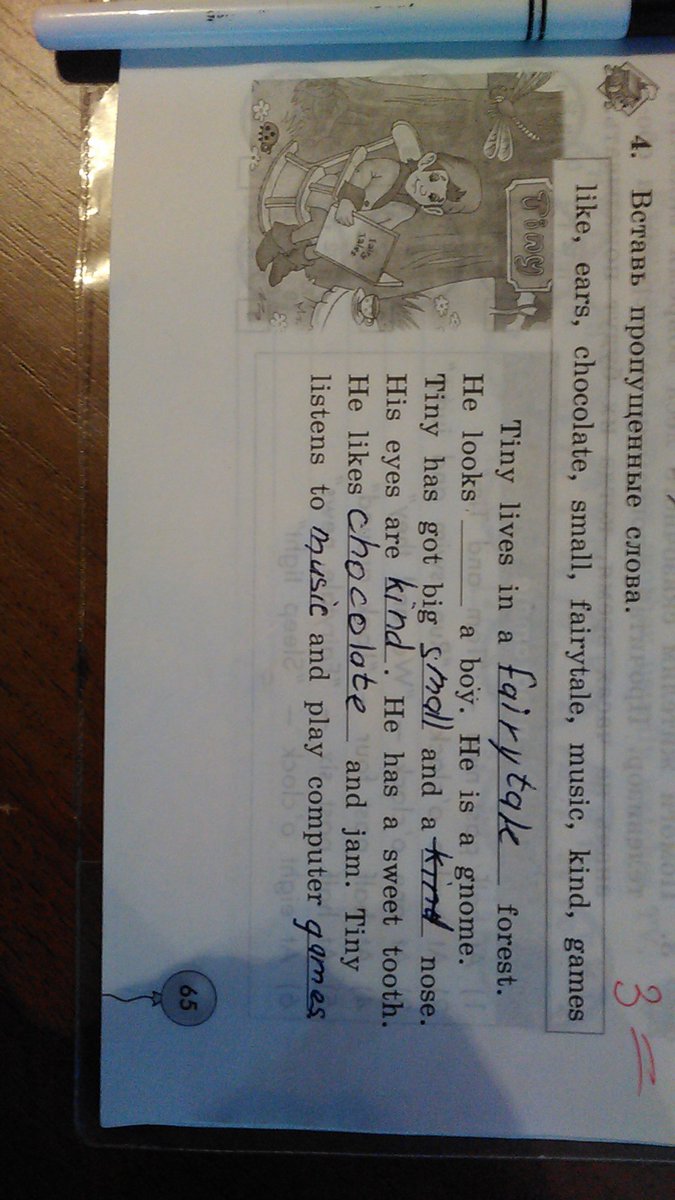 4. Вставь пропущенные слова.
like, ears, chocolate, small, fairytale, music, kind, games
Tiny
Fairy Tales
Tiny lives in a fairytale forest.
He looks ______ a boy. He is a gnome.
Tiny has got big small and a kind nose.
His eyes are kind. He has a sweet tooth.
He likes chocolate and jam. Tiny
listens to music and play computer games
65
3=